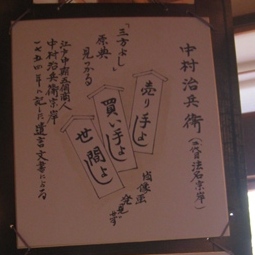 中村治兵衛
(二代目法名宗岸)
売り手よし
買い手よし
世間よし
「三方よし」
原典
見つかる
江戸中期近江商人
中村治兵衛宗岸
一七五四年に記した遺言文書による